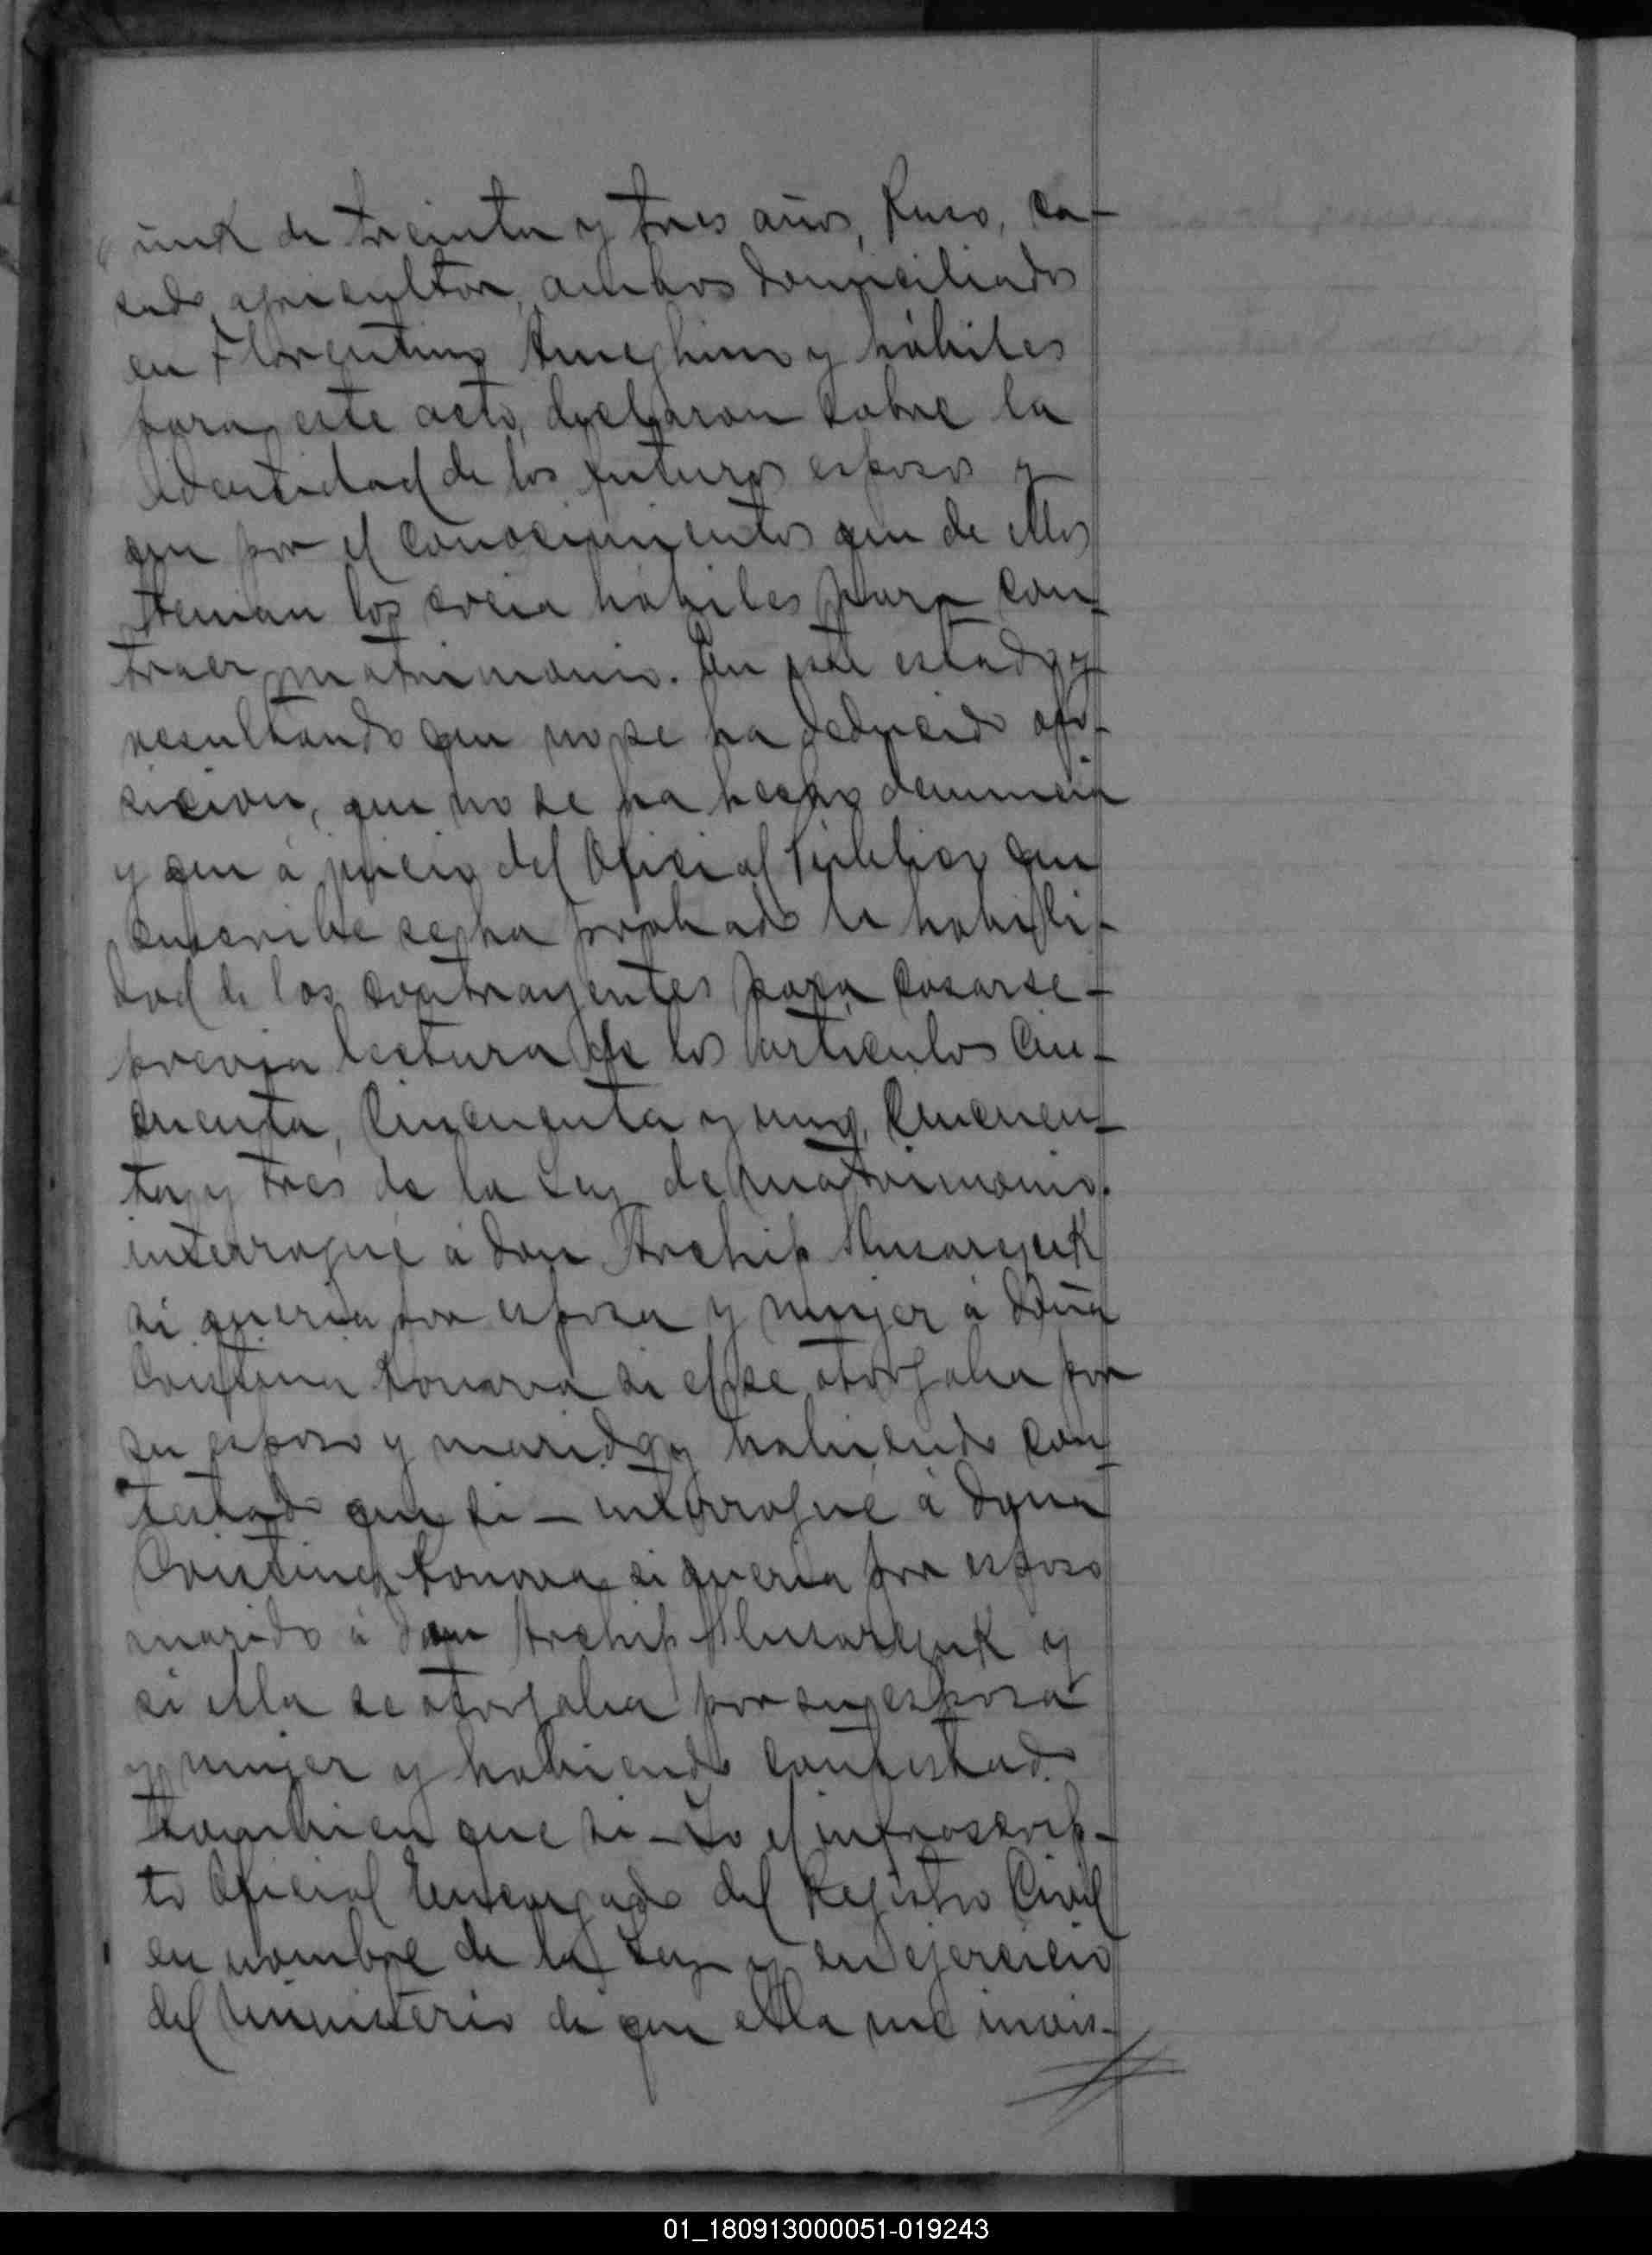 iuk de treinta y tres años, Ruso, ca-
sado, agricultor, ambos domiciliados
en Florentino Ameghino y hábiles
para este acto, declararon sobre la
identidad de los futuros esposos y
que por el conocimiento que de ellos
tenian los creia hábiles para con-
traer matrimonio. En este estado y
resultando que no se ha deducido opo-
sicion, que no se ha hecho denuncia
y que á juicio del Oficial Público que
suscribe se ha probado la habili-
dad de los contrayentes para casarse-
previa lectura de los articulos Cin-
cuenta, Cincuenta y uno, Cincuen-
ta y tres de la Ley de matrimonio.
interrogué á don Archip Slusarczuk
si queria por esposa y mujer á doña
Cristina Konova si el se otorgaba por
su esposo y marido y habiendo con-
testado que si - interrogué á doña
Cristina Konova si queria por esposo
marido á don Archip Slusarczuk y
si ella se otorgaba por su esposa
y mujer y habiendo contestado
tambien que si - Yo el infrascrip-
to Oficial Encargado del Registro Civil
en nombre de la Ley y en ejercicio
del Ministerio de que ella me inves-
01_180913000051-019243